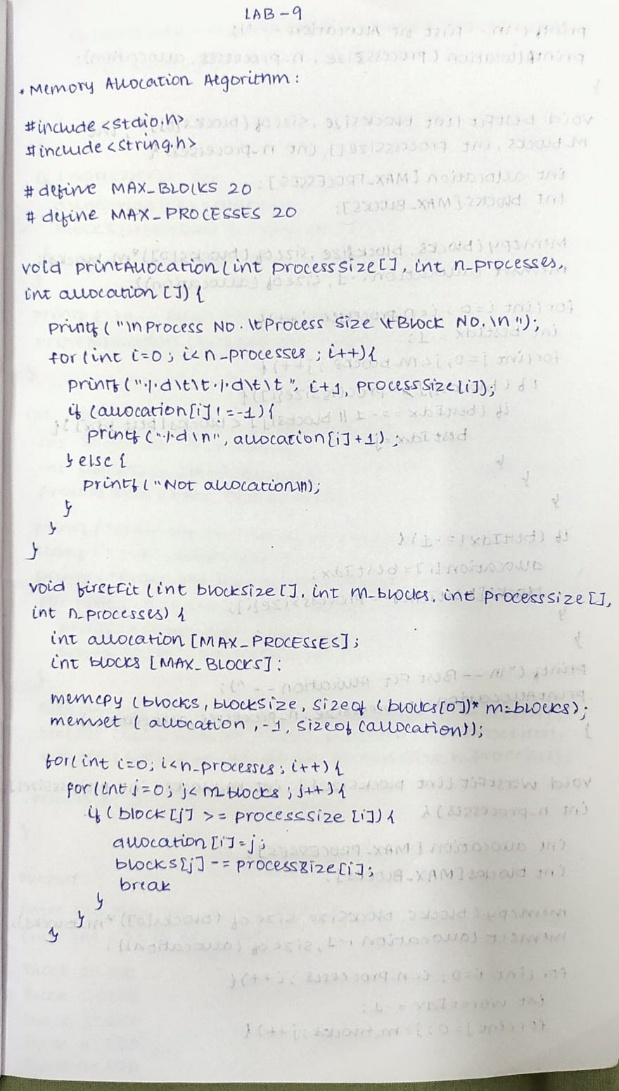 LAB-9
• Memory Allocation Algorithm:
#include <stdio.h>
#include <string.h>
# define MAX_BLOCKS 20
# define MAX_PROCESSES 20
void printAllocation(int processSize[], int n_processes,
int allocation []) {
printf("\nProcess No. \tProcess Size \tBlock No. \n");
for(int i=0; i<n_processes; i++){
printf("%d\t\t%d\t\t", i+1, processSize[i]);
if (allocation[i]!=-1){
printf("%d\n", allocation[i]+1);
} else {
printf("Not allocation\n);
}
}
}
void firstFit (int blockSize[], int m-blocks, int processSize[],
int n_processes) {
int allocation [MAX_PROCESSES];
int blocks [MAX_BLOCKS]:
memcpy (blocks, blockSize, sizeof (blocks[0])* m=blocks);
memset ( allocation, -1, sizeof (allocation));
for(int i=0; i<n_processes; i++) {
for(int j=0; j<m_blocks; j++){
if (block [j] >= processsize [i]) {
allocation [i]=j;
blocks[j] -= processSize[i];
break
}
}
}